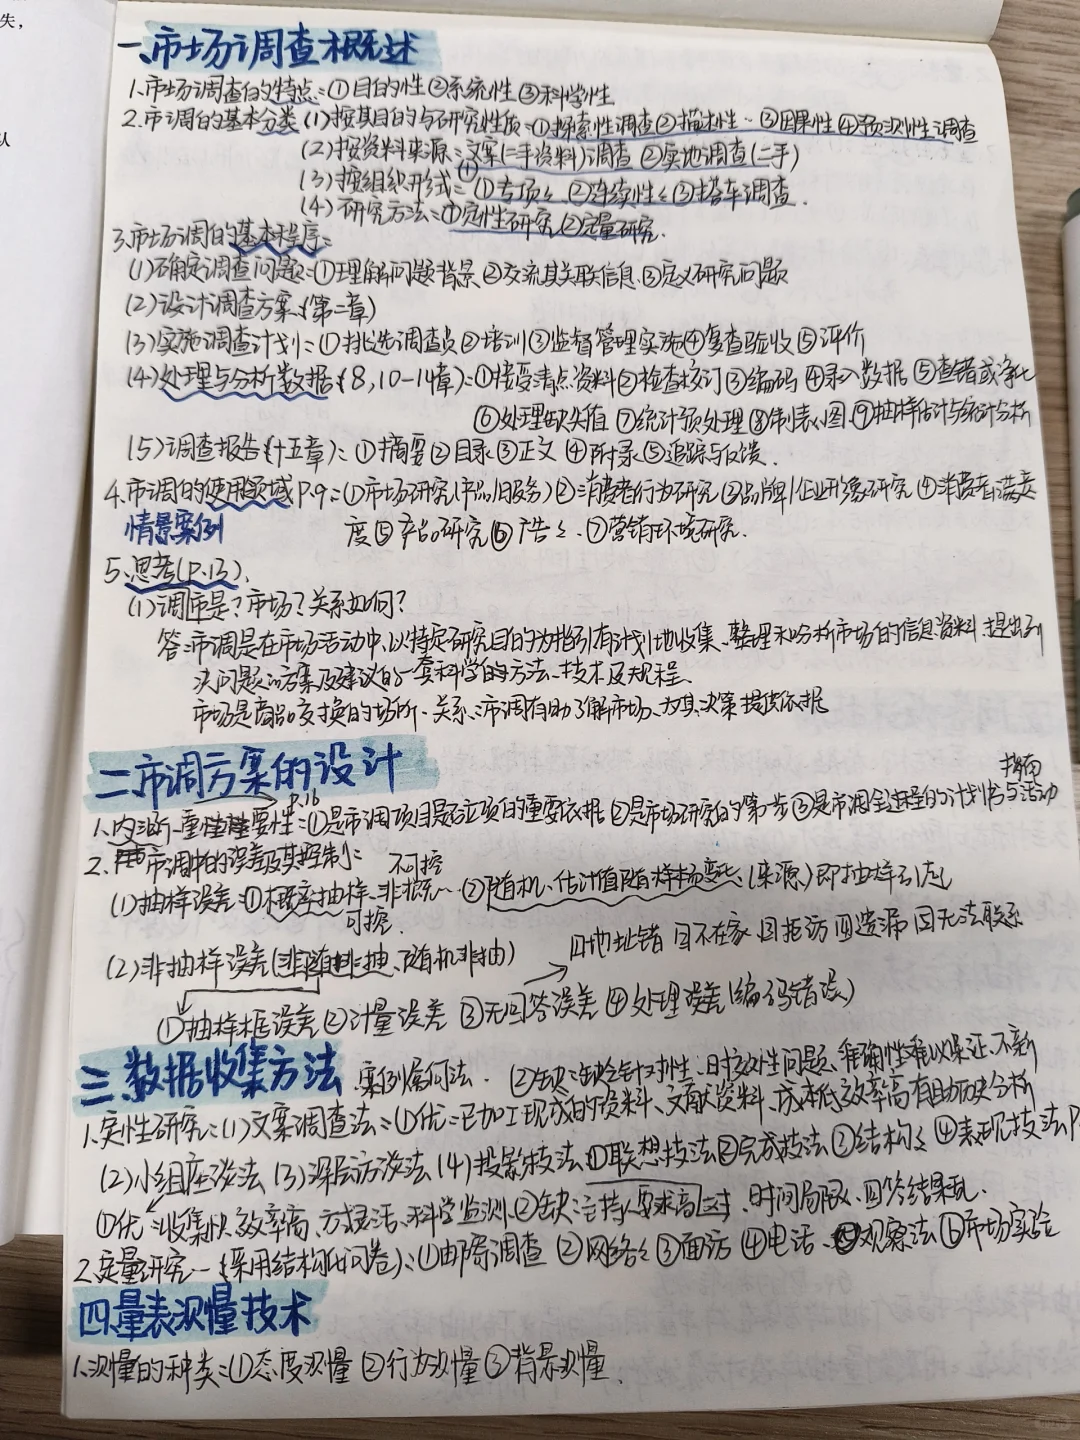 失,
认
一、市场调查概述
1.市场调查的特点:①目的性②系统性③科学性
2.市调的基本分类(1)按其目的与研究性质:①探索性调查②描述性~③因果性④预测性调查
(2)按资料来源:①文案(二手资料)调查 ②实地调查(二手)
(3)按组织形式:①专项~②连续性~③搭车调查.
(4)研究方法:①定性研究②定量研究.
3.市场调的基本程序:
(1)确定调查问题:①理解问题背景②交流其关联信息③定义研究问题
(2)设计调查方案(第二章)
(3)实施调查计划:①挑选调查员②培训③监督管理实施④复查验收⑤评价
(4)处理与分析数据(8,10-14章):①接受清点资料②检查校订③编码④录入数据⑤查错或净化
⑥处理缺失值⑦统计预处理⑧制表、图⑨抽样估计与统计分析
(5)调查报告(十五章):①摘要②目录③正文④附录⑤追踪与反馈.
4.市调的使用领域P.9:①市场研究(产品/旧服务)②消费者行为研究③品牌/企业形象研究④消费者满意
情景案例
度⑤产品研究⑥广告~.⑦营销环境研究.
5.思考(P.13).
(1)调市是?市场?关系如何?
答:市调是在市场活动中,以特定研究目的为指引有计划地收集、整理和分析市场的信息资料,提出
决问题的方案及建议的一套科学的方法、技术及规程.
市场是商品交换的场所.关系:市调有助了解市场、为其决策提供依据
二市调方案的设计
指南
P.16
1.内涵一重要性:①是市调项目是否立项的重要依据②是市场研究的第一步③是市调全过程的计划书与活动
2.市调中的误差及其控制:
不可控
(1)抽样误差:①概率抽样、非概率~②随机、估计值随样本变化(来源)即抽样引起
可控.
(2)非抽样误差(非随非抽、随机非抽)
①地址错 ②不在家 ③拒访 ④遗漏 ⑤无法联系
①抽样框误差②计量误差 ③无回答误差④处理误差(编码错误)
三.数据收集方法.案例属何法.
②缺:缺乏针对性、时效性问题、准确性难以保证、不新
1.定性研究:(1)文案调查法:①优:已加工现成的资料、文献资料、成本低效率高有助历史分析
(2)小组座谈法(3)深层访谈法(4)投影技法①联想技法②完成技法③结构~④表现技法P
①优:收集快、效率高、方式灵活、科学监测②缺:主持人要求高、时间局限、回答结果乱.
2.定量研究一(采用结构化问卷):①邮寄调查②网络~③面访④电话、⑤观察法⑥市场实验
四.量表测量技术
1.测量的种类:①态度测量②行为测量③背景测量.